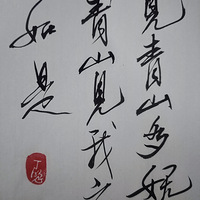 見青山多嫵
青山見我
如是